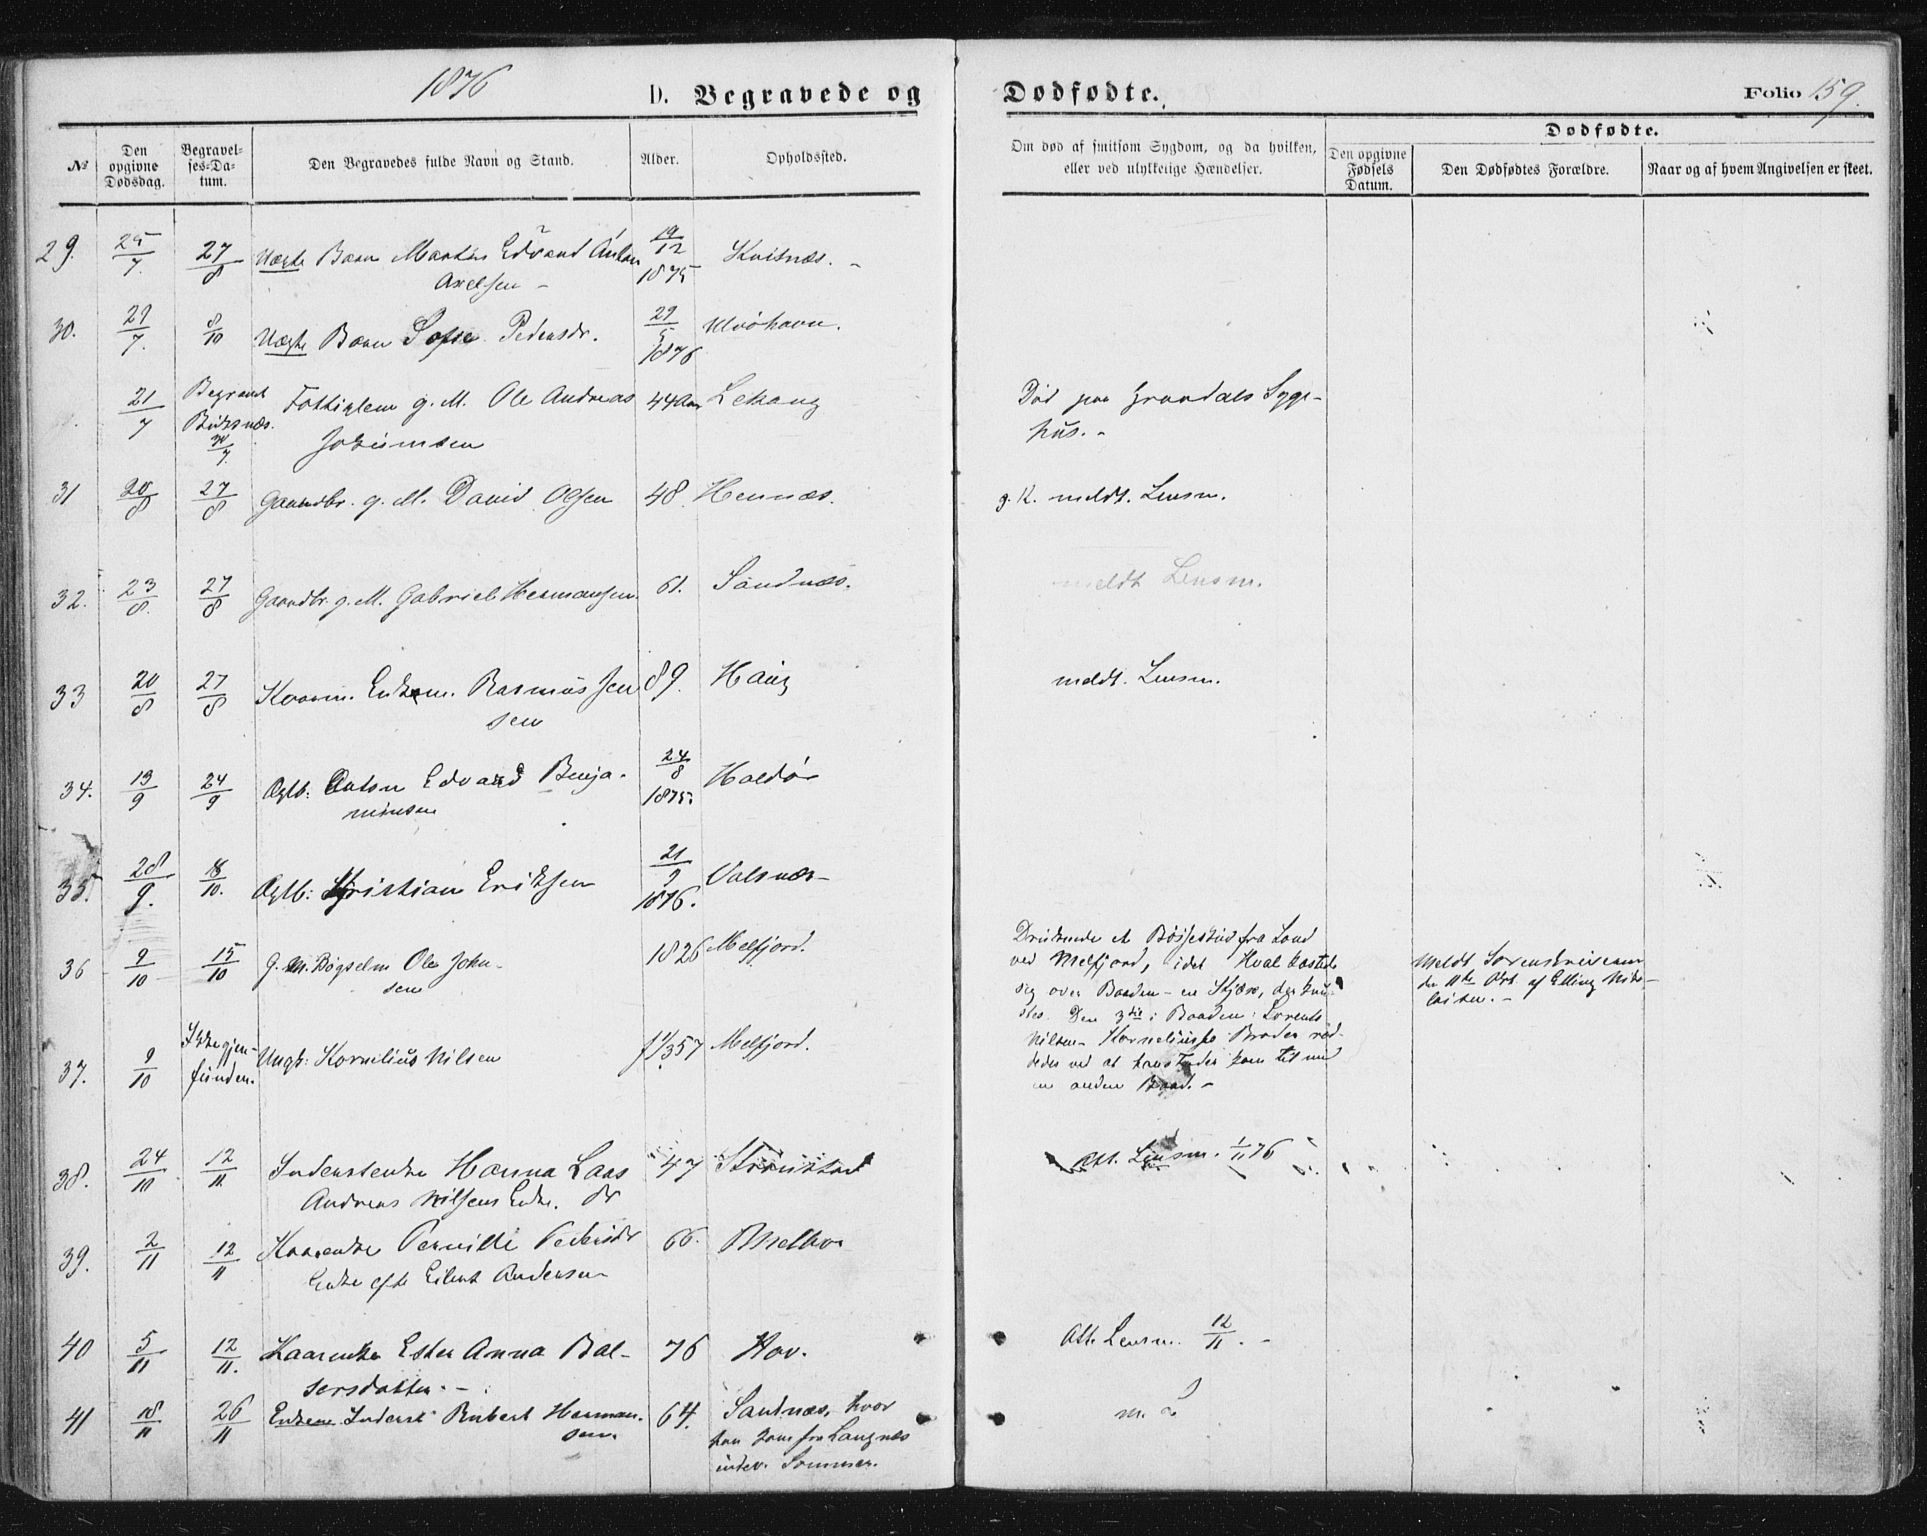 1876
D. Begravede og Dødfødte. Folio 159.
№
Den opgivne Dødsdag.
Begravelses-Datum.
Den Begravedes fulde Navn og Stand.
Alder.
Opholdssted.
Om død af smitsom Sygdom, og da hvilken, eller ved ulykkelige Hændelser.
Dødfødte.
Den opgivne Fødsels Datum.
Den Dødfødtes Forældre.
Naar og af hvem Angivelsen er skeet.
29. 25/7. 27/8 Uægte Barn Martin Edvard Anton 19/12 1875 Kvitnæs. -
Axelsen -
30. 29/7. 8/10 Uægte Barn Sofie Pedersdr. 29/5 1876 Ulvøhavn.
21/7 Begravet Buksnæs. 30/7. Fattiglem g. M. Ole Andreas 44 Aar Lekang Død paa Gravdals Syge-
Jokumsen hus. -
31 20/8 27/8 Gaardbr. g. M. David Olsen 48 Hennæs. g. K. meldt. Lensm.
32. 23/8. 27/8 Gaardbr. g. M. Gabriel Hermansen. 61. Sandnæs. meldt Lensm.
33 20/8 27/8 Kaarm. Enkem. Rasmus Jen 89. Haug meldt. Lensm.
sen
34. 13/9 24/9 Ægtb: Anton Edvard Benja- 24/8 1875. Haldør
minsen
35. 28/9. 18/10. Ægtb: Kristian Eriksen 21/9 1876. Valsnæs-
36 9/10 15/10 g. M. Bøgselm Ole John- 1826 Melfjord.
sen
Druknede et Bøsseskud fra Land
ved Melfjord, idet Hval kastede
sig over Baaden - en
Den 3die i Baaden: Lorents
Nilsen - Broder red-
dedes ved at kom til
en anden Baad. -
Meldt Sorenskriveren
den 11te Okt. af Elling Niko-
laisen. -
37. 9/10 Ikke gjen-
funden. Ungk: Kornilius Nilsen 57 Melfjord.
38. 24/10 12/11 Inderstenke Hanna Laas 47 Straumstad Att. Lensm. 1/11 76
Andreas Nilsens Enke. dr
39. 2/11 12/11 Kaarenke Pernille Pedersdr 66. Melbo
Enke efter Eilert Andersen
40 5/11 12/11. Kaarenke Ester Anna Bal- 76 Hov. Att. Lensm. 12/11. -
sersdatter. -
41 18/11 26/11 Enkem. Inderst Robert Herman- 64. Sandnæs, hvor m. L
sen han kom fra Langnæs
Sommer.